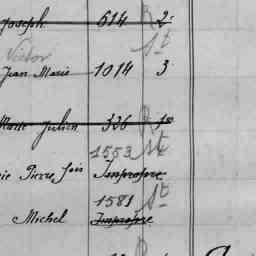 Joseph 614 R 2
Victor St
Jean Marie 1014 3
Marie Julien 326 R 1e
1553 St
ie Pierre fois Impropre
1581 St
Michel Impropre
R